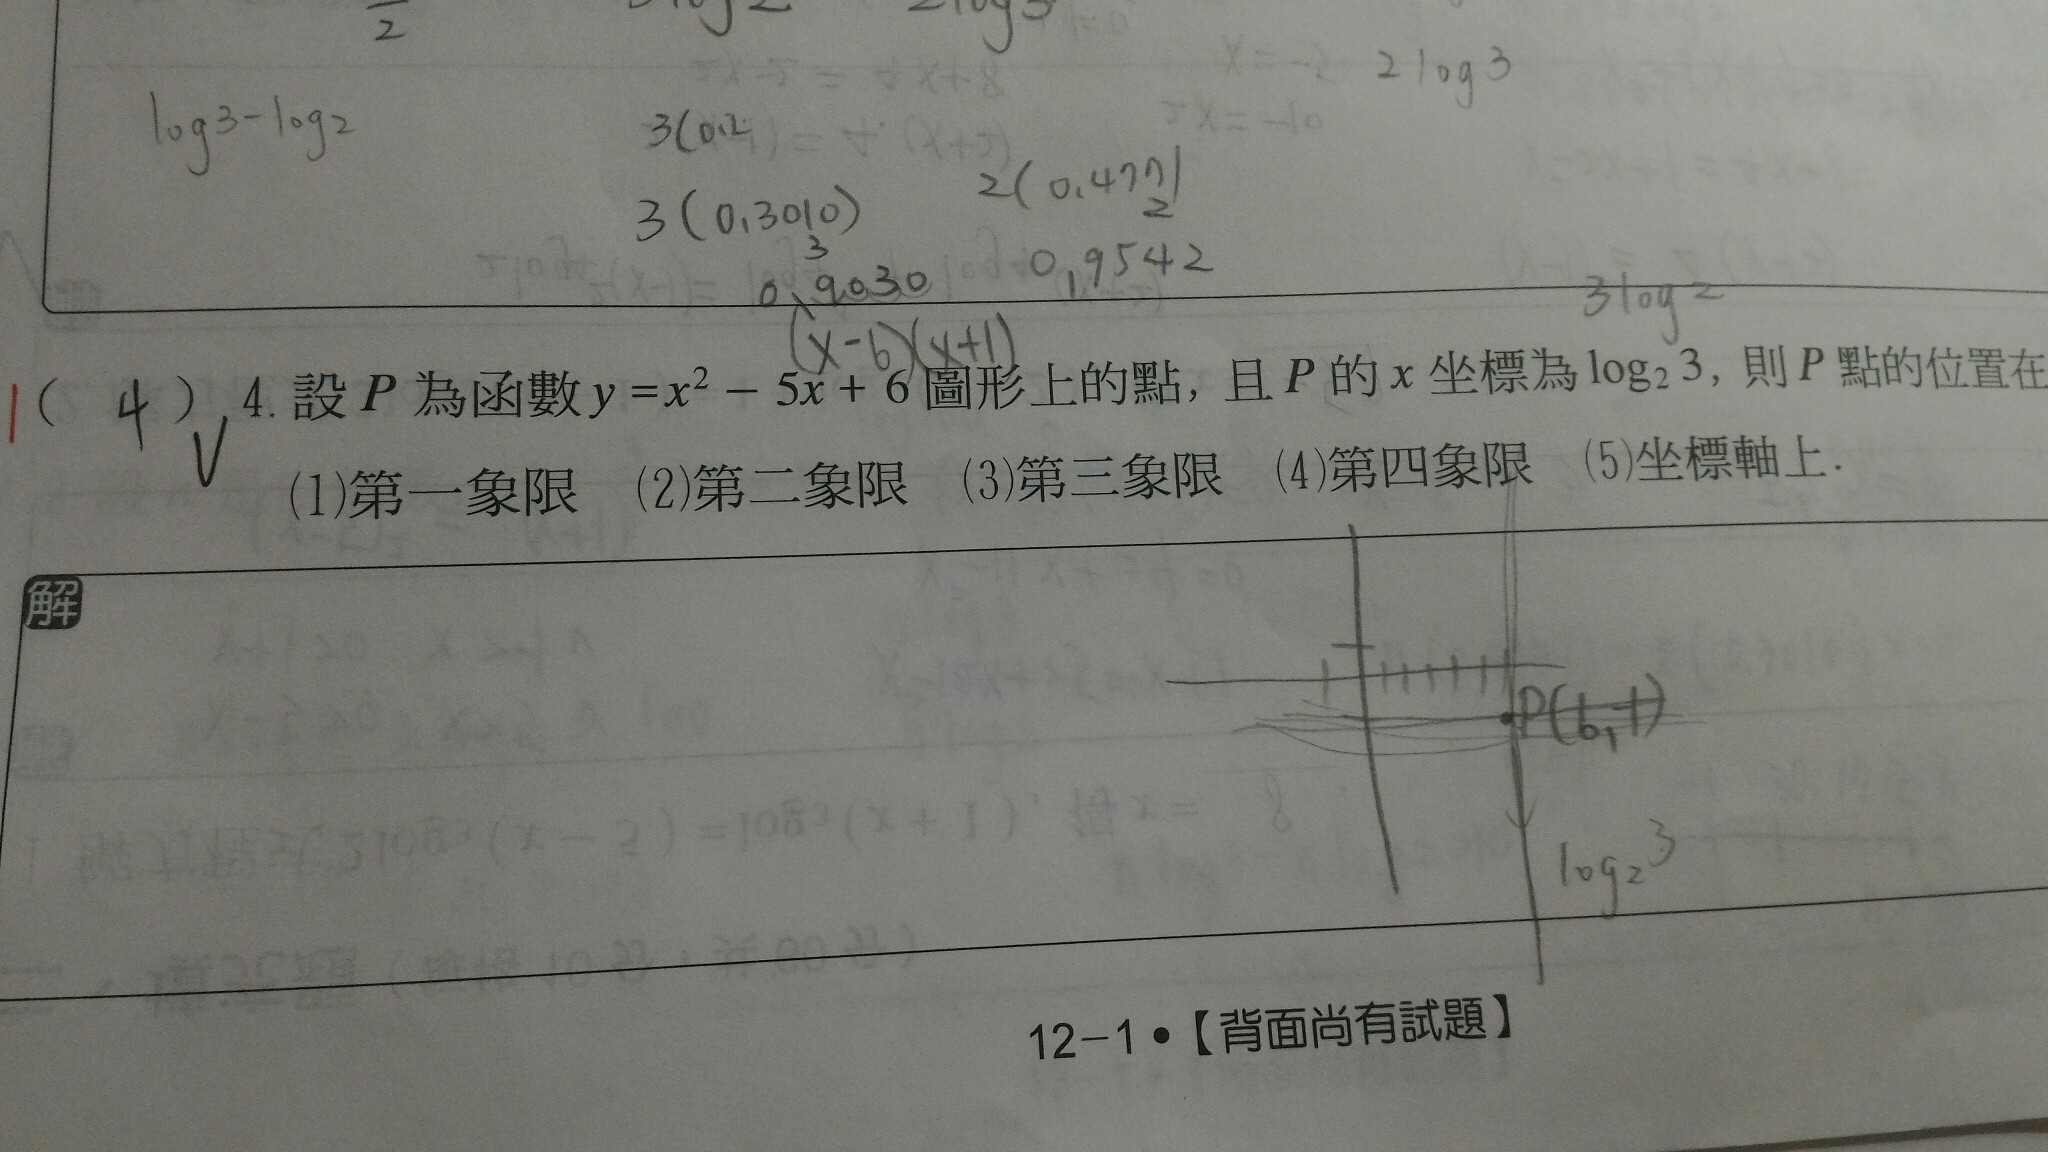 2
3log2
2log3
2log3
log3-log2
3(0.2
3(0.3010)
2(0.4771
3
2
0.9030
0.9542
3log2
(x-6)(x+1)
1( 4 ) 4. 設 P 為函數 y =x² − 5x + 6 圖形上的點, 且 P 的 x 坐標為 log₂ 3, 則 P 點的位置在
(1)第一象限 (2)第二象限 (3)第三象限 (4)第四象限 (5)坐標軸上.
解
P(6,-1)
log₂3
12−1•【背面尚有試題】